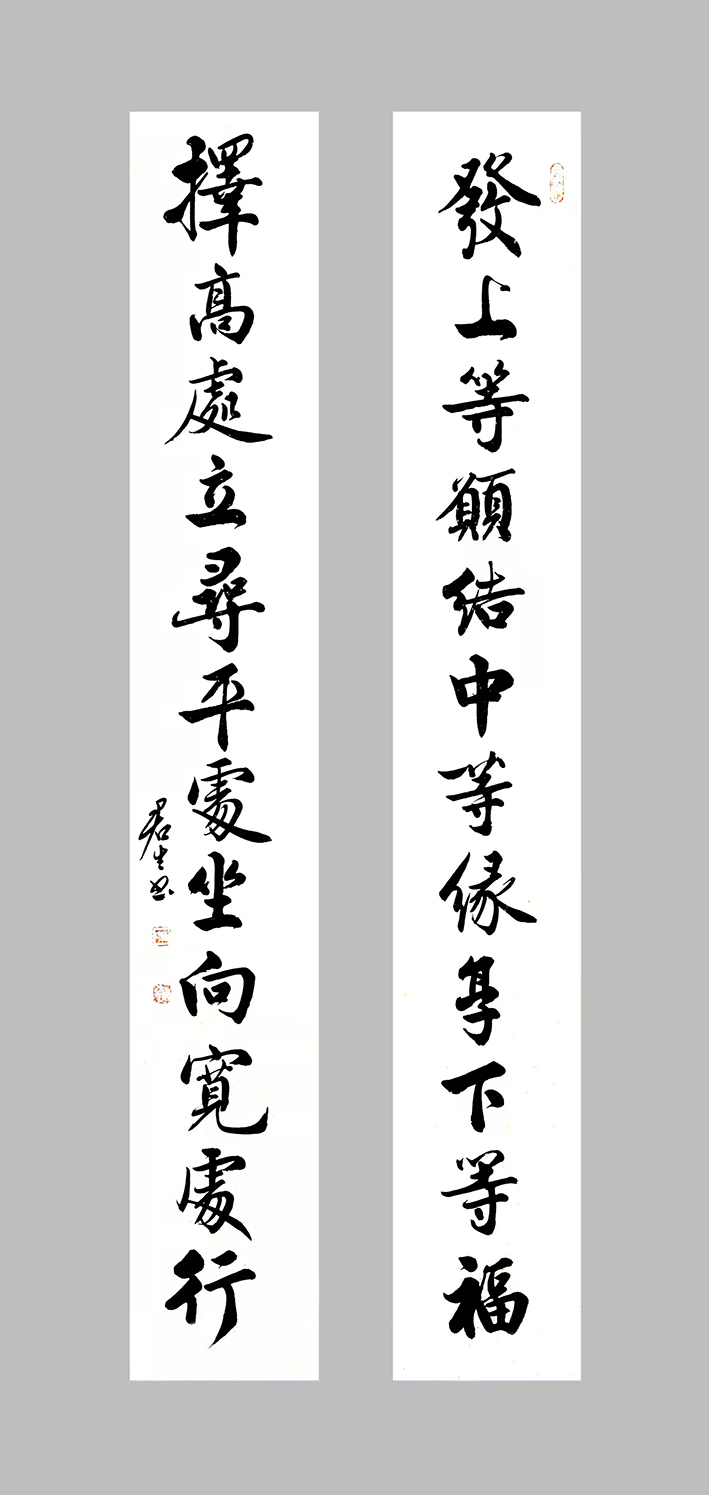 發上等願結中等緣享下等福
擇高處立尋平處坐向寬處行
君生書